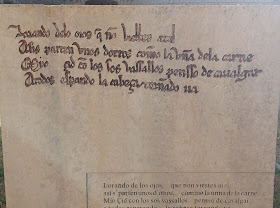 Lorando delos oios q nõ viestes atal
Asis parten vnos dotros commo la vña dela carne
Myo çid cõ los sos vassallos pensso de caualgar
A todos esperando la cabeça tornado ua
Llorando de los ojos, que non viestes atal
assís parten unos d'otros commo la uña de la carne
Mio Cid con los sos vassallos penssó de cavalgar